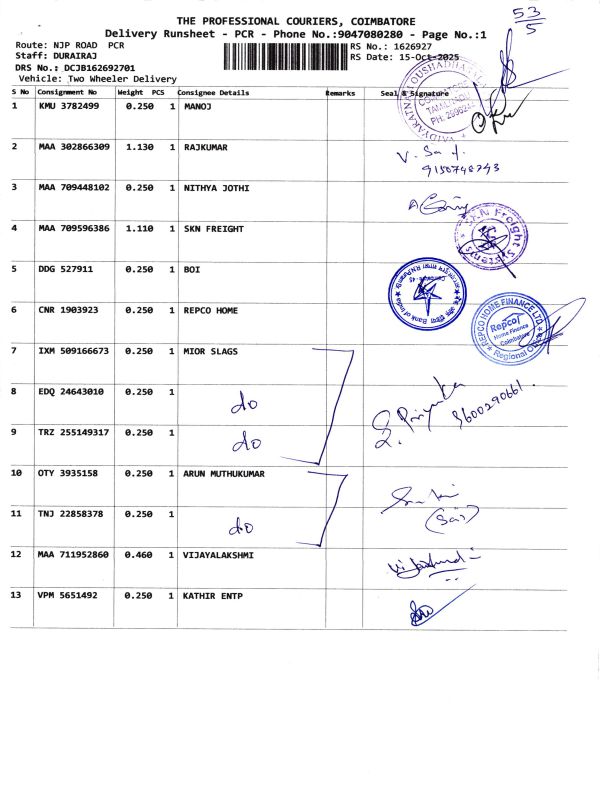 53
5
THE PROFESSIONAL COURIERS, COIMBATORE
Delivery Runsheet - PCR - Phone No.:9047080280 - Page No.:1
Route: NJP ROAD PCR
Staff: DURAIRAJ
DRS No.: DCJB162692701
Vehicle: Two Wheeler Delivery
RS No.: 1626927
RS Date: 15-Oct-2025
S No Consignment No Weight PCS Consignee Details Remarks Seal & Signature
1 KMU 3782499 0.250 1 MANOJ
2 MAA 302866309 1.130 1 RAJKUMAR
9150748743
3 MAA 709448102 0.250 1 NITHYA JOTHI
4 MAA 709596386 1.110 1 SKN FREIGHT
SKN Freight Systems
5 DDG 527911 0.250 1 BOI
Bank of India
6 CNR 1903923 0.250 1 REPCO HOME
REPCO HOME FINANCE LTD.
Repco
Home Finance
Coimbatore
Regional Office
7 IXM 509166673 0.250 1 MIOR SLAGS
8 EDQ 24643010 0.250 1 do
Priyanka 3600290661.
9 TRZ 255149317 0.250 1 do
10 OTY 3935158 0.250 1 ARUN MUTHUKUMAR
11 TNJ 22858378 0.250 1 do
(Sai)
12 MAA 711952860 0.460 1 VIJAYALAKSHMI
13 VPM 5651492 0.250 1 KATHIR ENTP